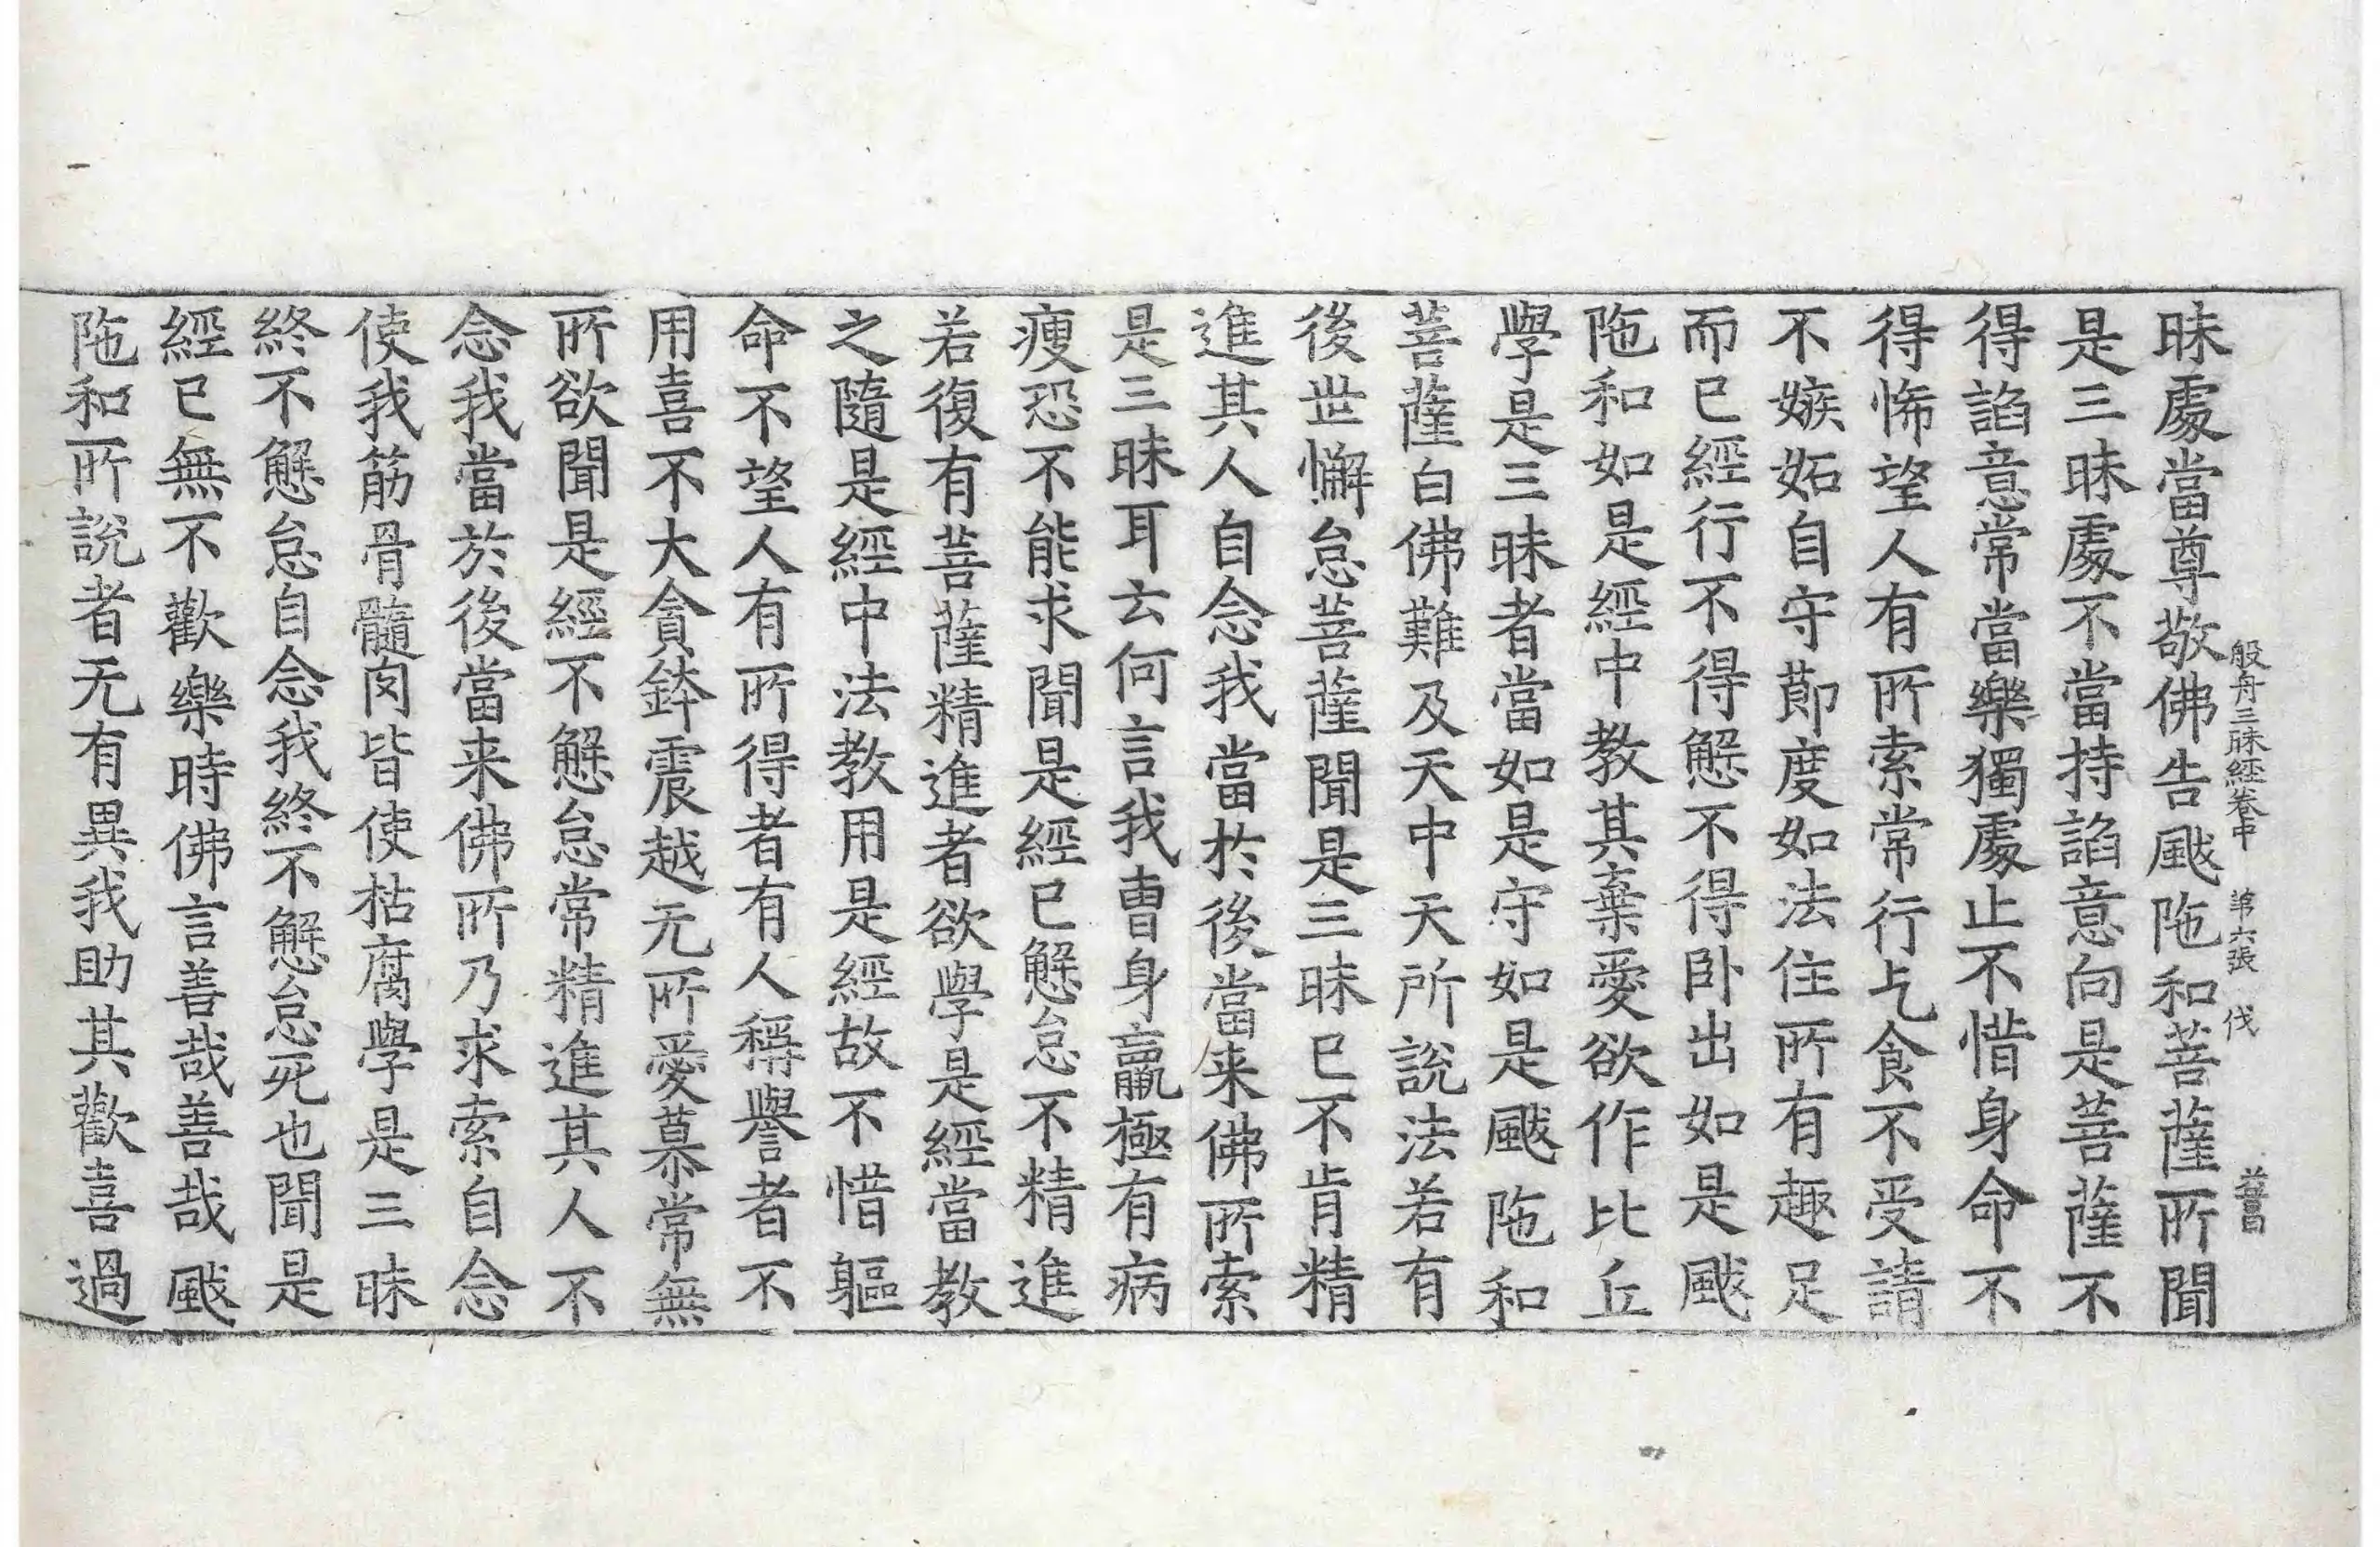 般舟三昧経卷中 第六張 伐
昧處當尊敬佛告颰陁和菩薩所聞
是三昧處不當持諂意向是菩薩不
得諂意常當樂獨處止不惜身命不
得悕望人有所索常行乞食不受請
不嫉妬自守節度如法住所有趣足
而已經行不得懈不得卧出如是颰
陁和如是經中教其棄愛欲作比丘
學是三昧者當如是守如是颰陁和
菩薩白佛難及天中天所說法若有
後世懈怠菩薩聞是三昧已不肯精
進其人自念我當於後當来佛所索
是三昧耳云何言我曺身羸極有病
瘦恐不能求聞是經已懈怠不精進
若復有菩薩精進者欲學是經當教
之隨是經中法教用是經故不惜軀
命不望人有所得者有人稱譽者不
用喜不大貪鉢震越无所愛慕常無
所欲聞是經不懈怠常精進其人不
念我當於後當来佛所乃求索自念
使我筋骨髓肉皆使枯腐學是三昧
終不懈怠自念我終不懈怠死也聞是
經已無不歡樂時佛言善哉善哉颰
陁和所說者无有異我助其歡喜過